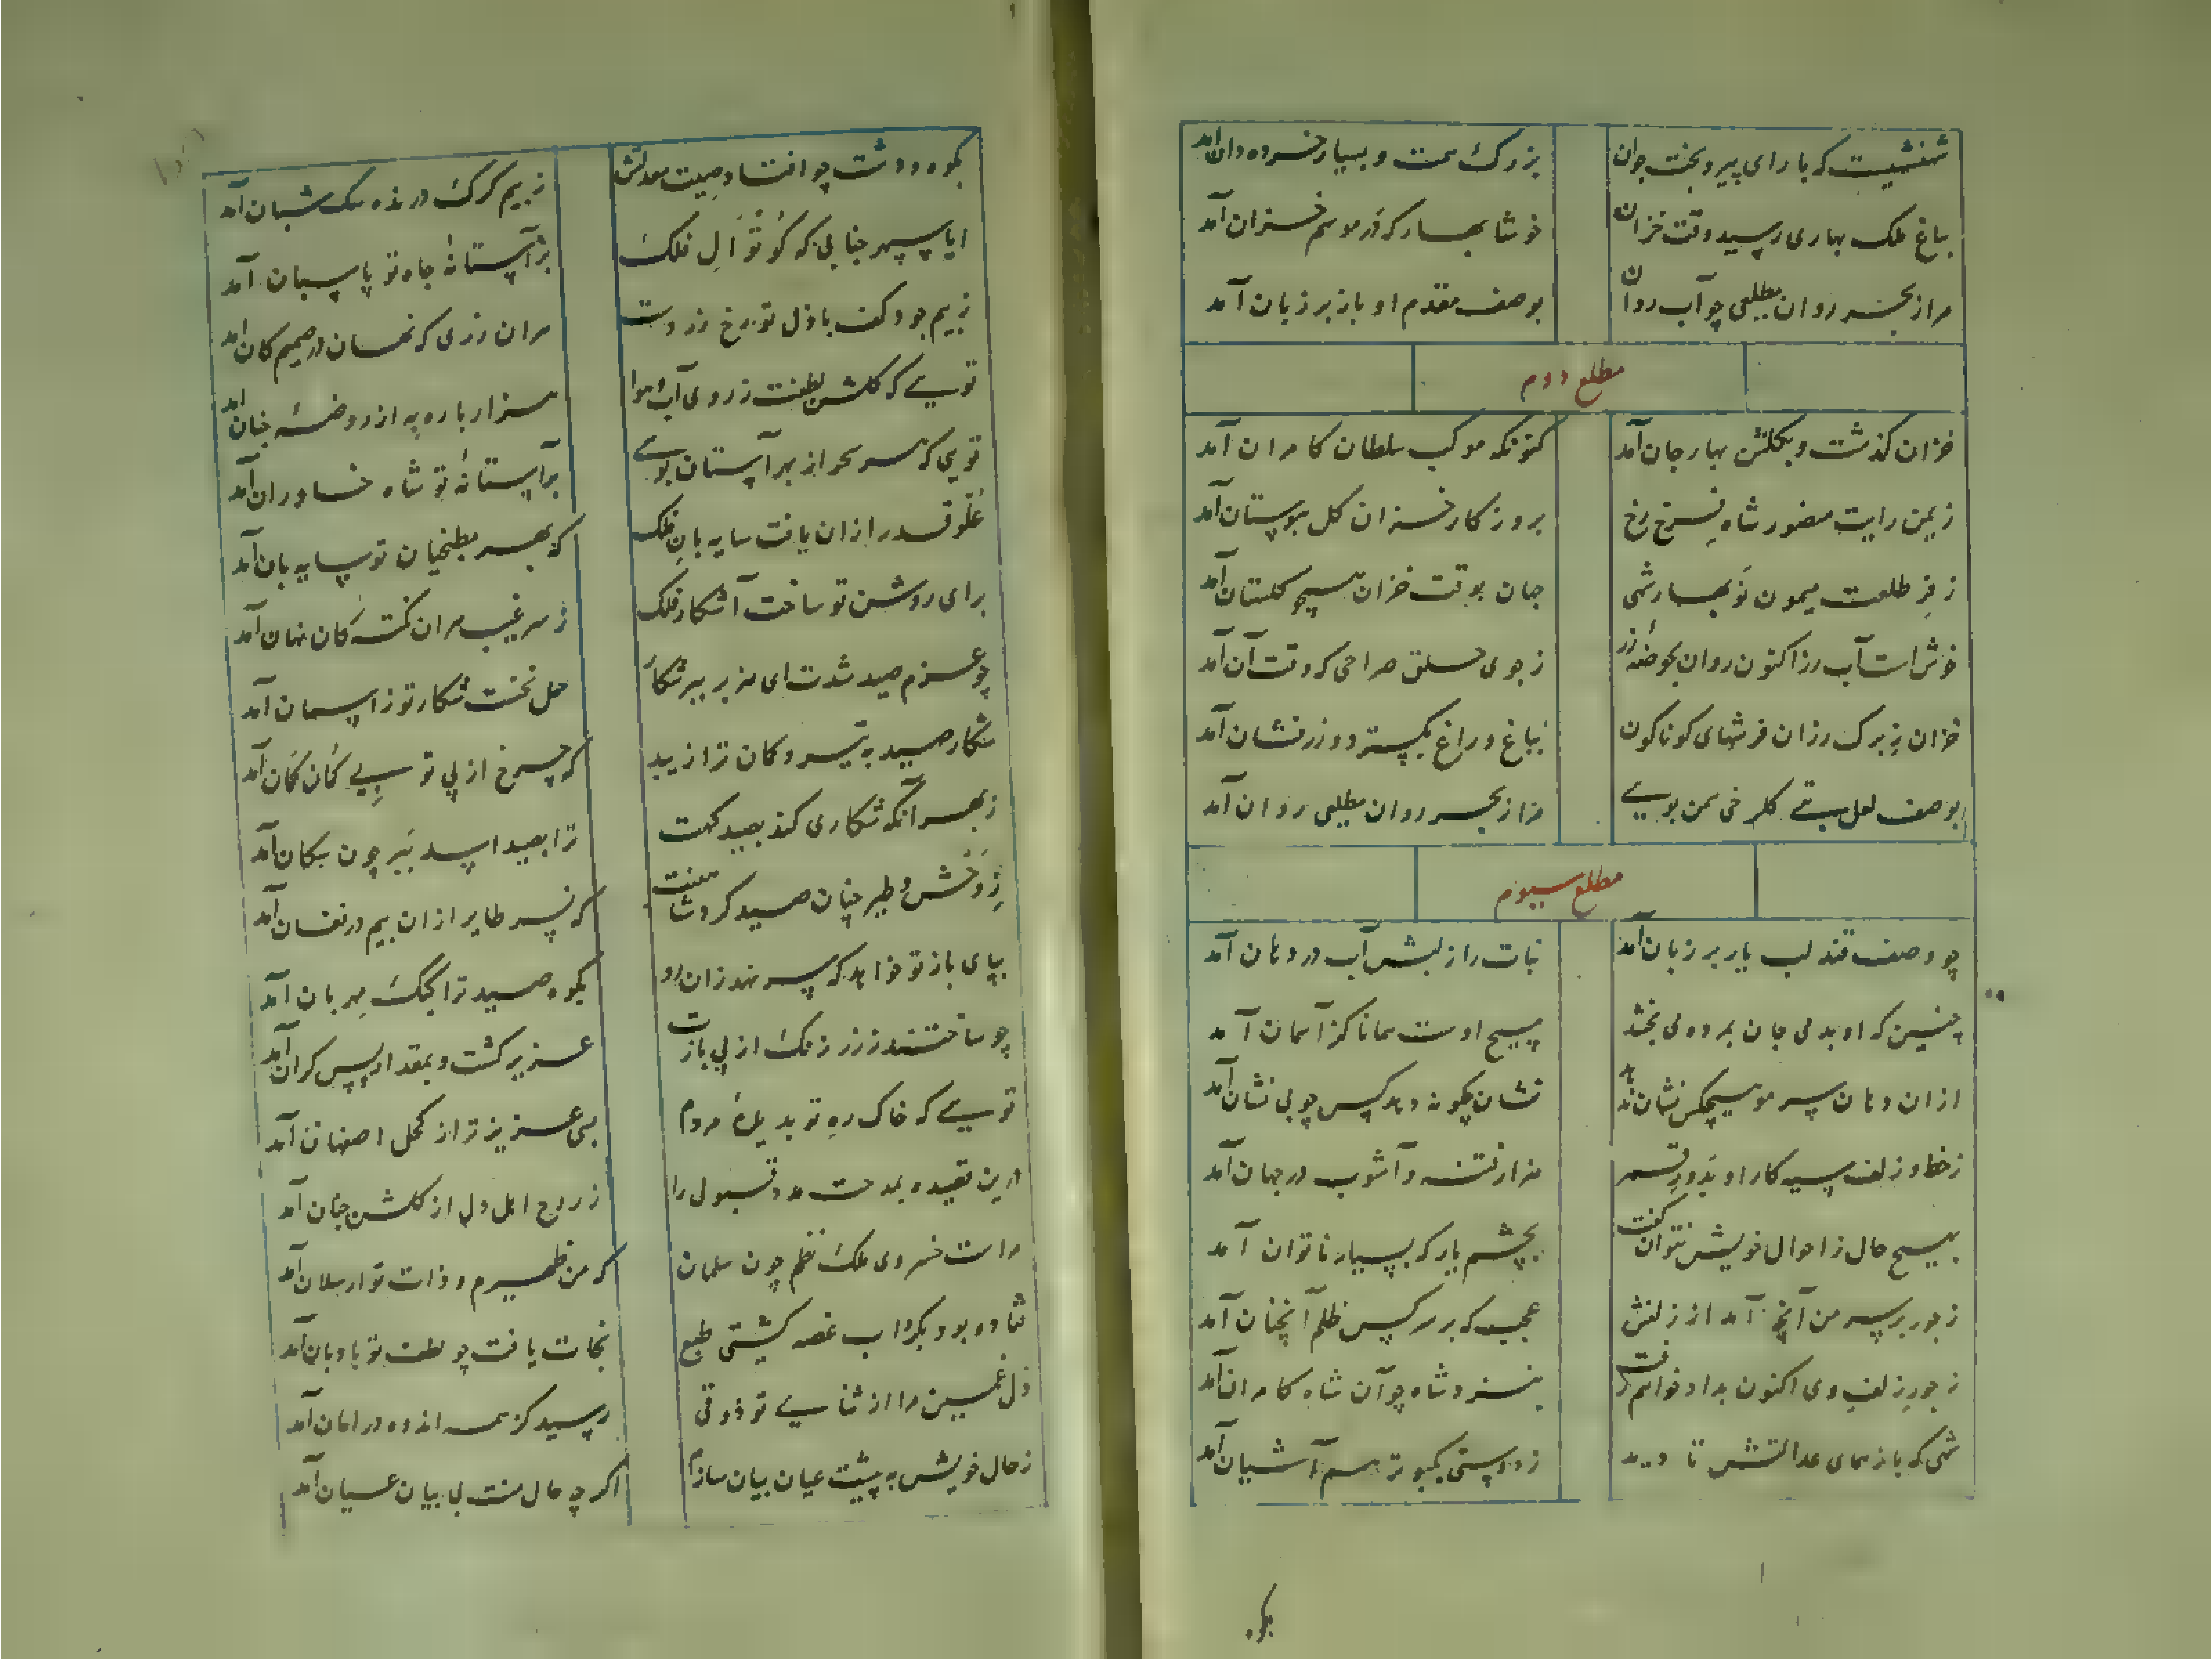 شهنشیست که با رای پیر و بخت جوان بزرک همت و بسیار خرده دان آمد
بباغ ملک بهاری رسید وقت خزان خوشا بهار که در موسم خزان آمد
مرا ز بحر روان مطلعی چو آب روان بوصف مقدم او باز بر زبان آمد
مطلع دوم
خزان کذشت و بکلشن بهار جان آمد کنونکه موکب سلطان کامران آمد
ز یمن رایت منصور شاه فرخ رخ بروزکار خزان کل ببوستان آمد
ز فر طلعت میمون نوبهار شهی جهان بوقت خزان همچو کلستان آمد
خوش است آب رز اکنون روان بحوضه زر ز جوی حلق صراحی که وقت آن آمد
خزان ز برک رزان فرشهای کوناکون بباغ و راغ بکسترد و زرفشان آمد
بوصف لعل بتی کلرخی سمن بویی مرا ز بحر روان مطلعی روان آمد
مطلع سیوم
چو وصف قند لب یار بر زبان آمد نبات را ز لبش آب در دهان آمد
چنین که او بدمی جان بمرده می بخشد مسیح اوست همانا کز آسمان آمد
از آن دهان سر مو هیچکس نشان ندهد نشان چکونه دهد کس چو بی نشان آمد
ز خط و زلف سیه کار او بدور قمر هزار فتنه و آشوب در جهان آمد
بهیچ حال ز احوال خویش نتوان کفت بچشم یار که بسیار ناتوان آمد
ز جور بر سر من آنچه آمد از زلفش عجب که بر سر کس ظلم آنچنان آمد
ز جور زلف وی اکنون بداد خواهم رفت بنزد شاه چو آن شاه کامران آمد
شهی که باز همای عدالتش تا دید ز دوستی کبوتر هم آشیان آمد
بکوه
بکوه و دشت چو افتاد صیت معدلتش ز بیم کرک درنده سک شبان آمد
ایا سپهر جنابی که کوتوال فلک بر آستانه جاه تو پاسبان آمد
ز بیم جود کف باذل تو رخ زردست هر آن زری که نهان در صمیم کان آمد
تویی که کلشن لطفت ز روی آب و هوا هزار باره به از روضه جنان آمد
تویی که هر سحر از بهر آستان بوسی بر آستانه تو شاه خاوران آمد
علو قدر از آن یافت سایه بان فلک که بهر مطبخیان تو سایه بان آمد
برای روشن تو ساخت آشکار فلک ز سر غیب هر آن نکته کان نهان آمد
چو عزم صید شدت ای هزبر ببر شکار حمل نخست شکار تو ز آسمان آمد
شکار صید به تیر و کمان ترا زیبد که چرخ از پی تو بی کمان کمان آمد
ز بهر آنکه شکاری کند بصید کهت ترا بصید اسد نیز چون سکان آمد
ز وحش و طیر چنان صید کرد شاهینت که نسر طایر از آن بیم در فغان آمد
بپای باز تو خواهد که سر نهد زان رو بکوه صید ترا کبک مهربان آمد
چو ساختند ز زر زنک از پی بازت عزیز کشت و بمقدار بس کران آمد
تویی که خاک ره تو بدیده مردم بسی عزیزتر از کحل اصفهان آمد
درین قصیده بمدحت مدد قبولی را ز روح اهل دل از کلشن جنان آمد
مراست خسروی ملک نظم چون سلمان که من ظهیرم و ذات تو ارسلان آمد
فتاده بود بکرداب غصه کشتی طبع نجات یافت چو لطف تو بادبان آمد
دل غمین مرا از ثنای تو ذوقی رسید کز همه اندوه در امان آمد
ز حال خویش به پیشت عیان بیان سازم اکر چه حال منت بی بیان عیان آمد